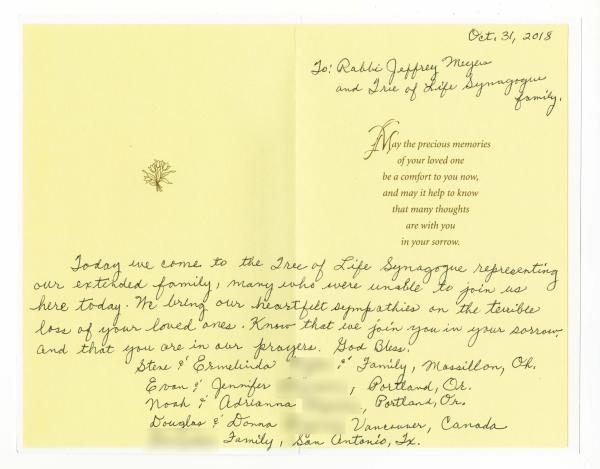 Oct. 31, 2018
To: Rabbi Jeffrey Meyers
and Tree of Life Synagogue
family.
May the precious memories
of your loved one
be a comfort to you now,
and may it help to know
that many thoughts
are with you
in your sorrow.
Today we come to the Tree of Life Synagogue representing
our extended family, many who were unable to join us
here today. We bring our heartfelt sympathies on the terrible
loss of your loved ones. Know that we join you in your sorrow
and that you are in our prayers. God Bless.
Steve & Ermelinda & Family, Massillon, Oh.
Evan & Jennifer , Portland, Or.
Noah & Adrianna , Portland, Or.
Douglas & Donna Vancouver, Canada
Family, San Antonio, Tx.